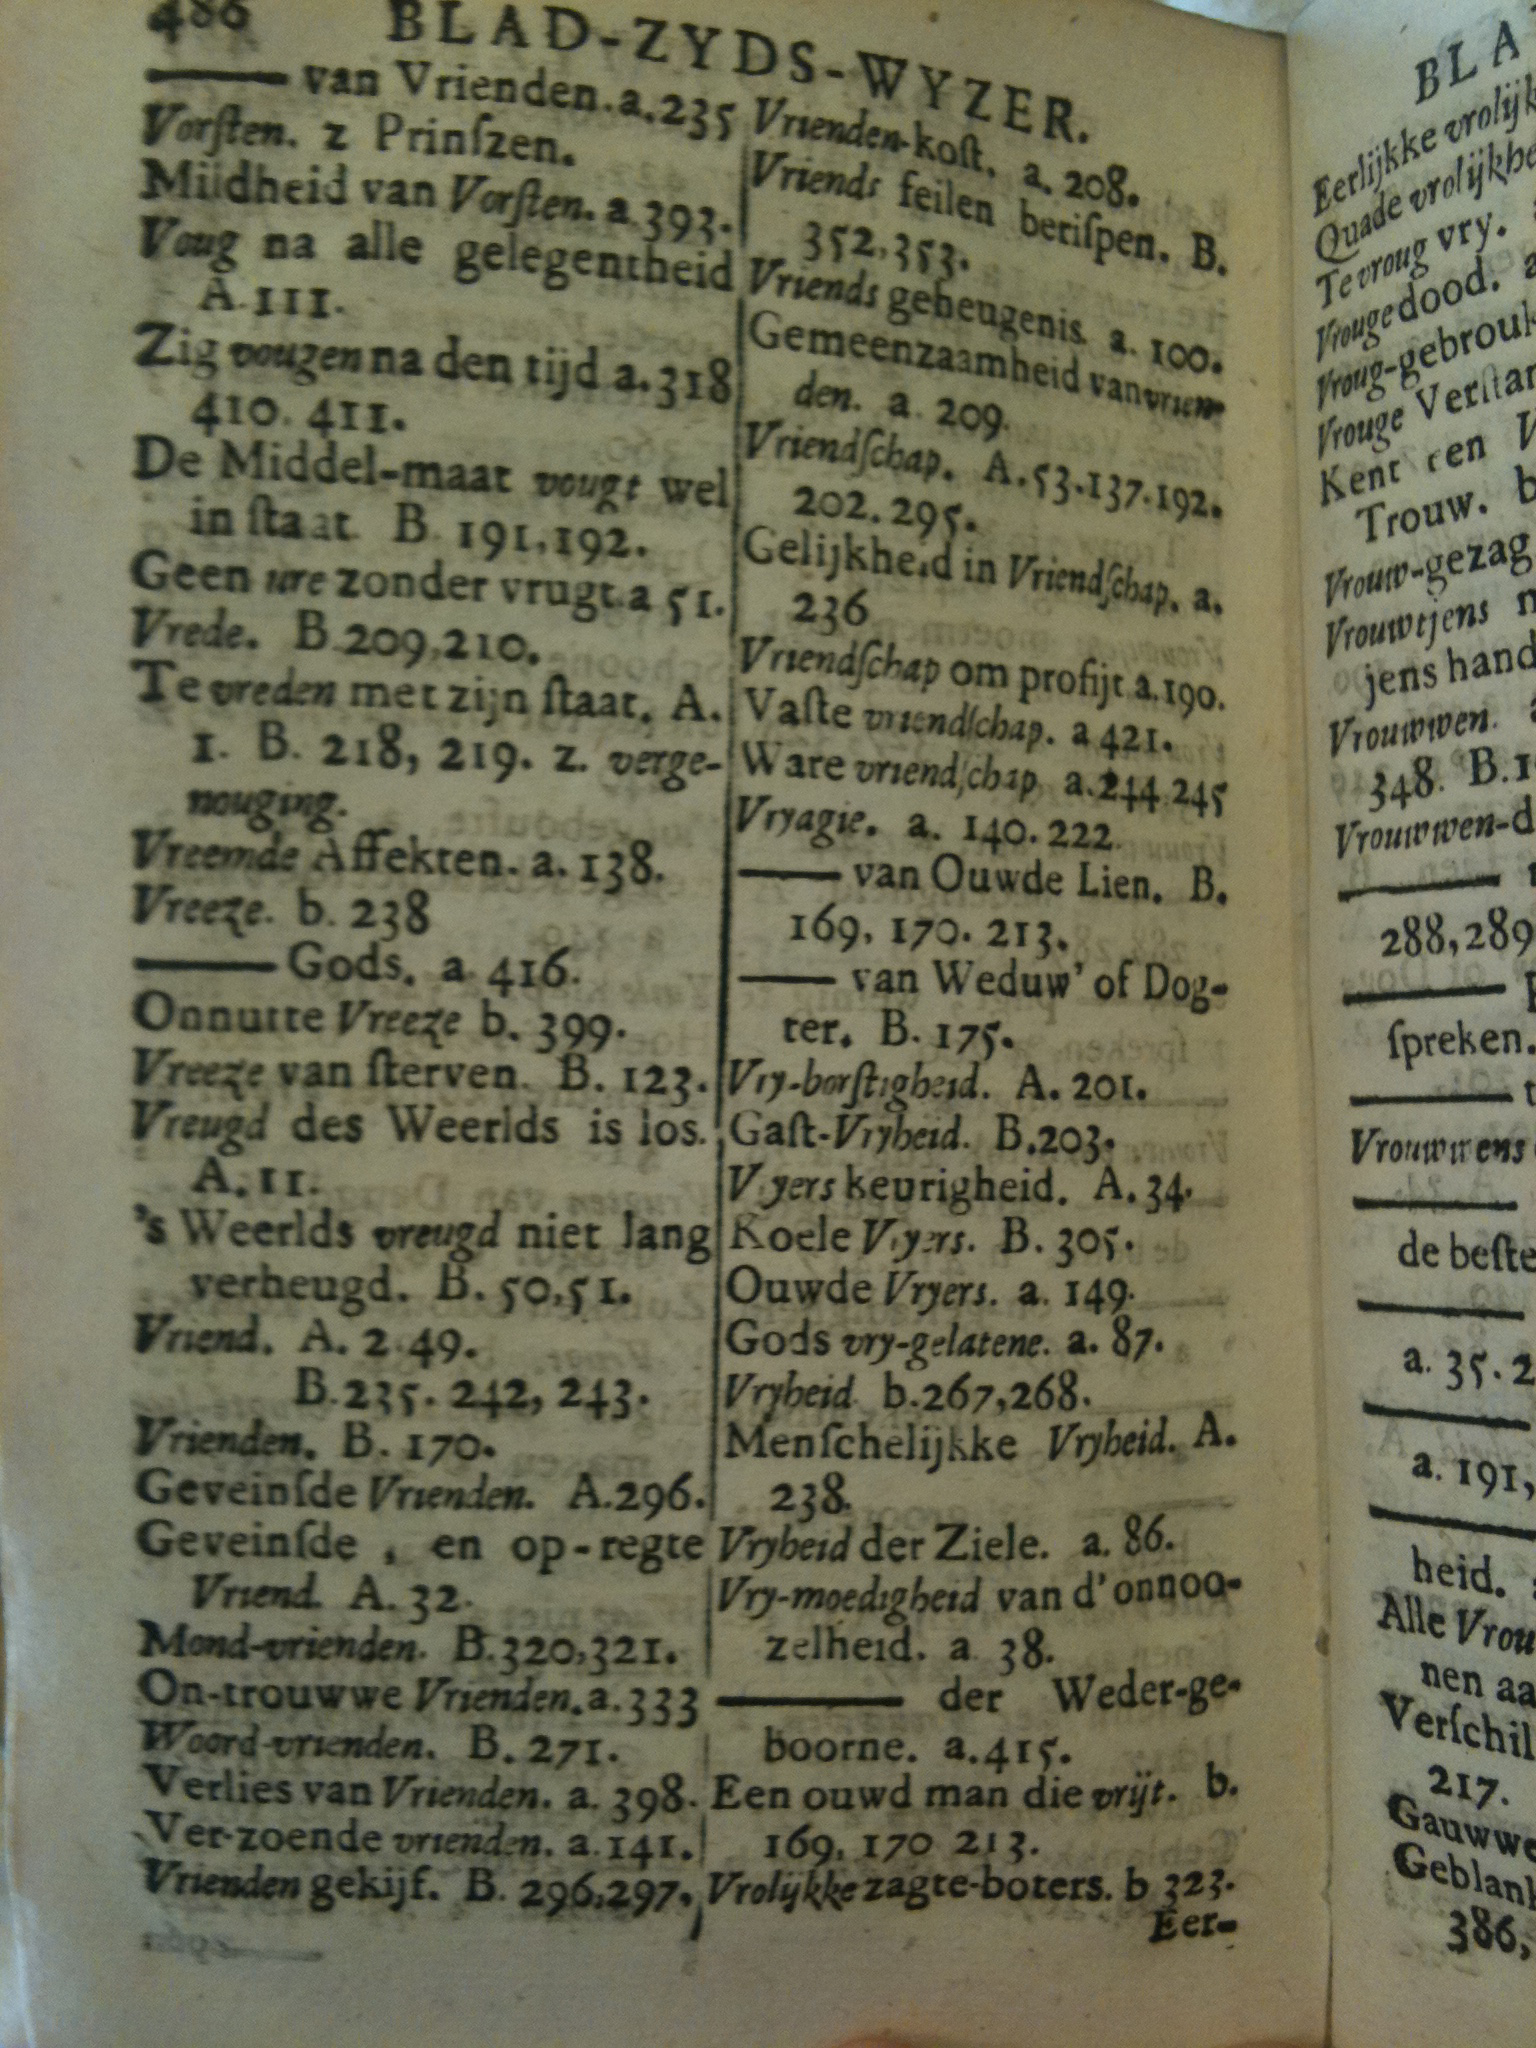 486 BLAD-ZYDS-WYZER.
—— van Vrienden. a. 235
Vorſten. z Prinſzen.
Mildheid van Vorſten. a 393.
Voug na alle gelegentheid
A 111.
Zig vougen na den tijd a. 318
410. 411.
De Middel-maat vougt wel
in ſtaat B 191, 192.
Geen ure zonder vrugt. a 51.
Vrede. B. 209, 210.
Te vreden met zijn ſtaat. A.
1. B. 218, 219. z. verge-
nouging.
Vreemde Affekten. a. 138.
Vreeze. b. 238
—— Gods. a 416.
Onnutte Vreeze b. 399.
Vreeze van ſterven. B. 123.
Vreugd des Weerlds is los.
A. 11.
's Weerlds vreugd niet lang
verheugd. B. 50, 51.
Vriend. A. 2 49.
B. 235. 242, 243.
Vrienden. B. 170.
Geveinſde Vrienden. A. 296.
Geveinſde, en op-regte
Vriend. A. 32.
Mond-vrienden. B. 320, 321.
On-trouwwe Vrienden. a. 333
Woord-vrienden. B. 271.
Verlies van Vrienden. a. 398.
Ver-zoende vrienden. a. 141.
Vrienden gekijf. B. 296, 297.
Vrienden-koſt. a. 208.
Vriends feilen beriſpen. B.
352, 353.
Vriends geheugenis. a. 100.
Gemeenzaamheid van vrien-
den. a. 209.
Vriendſchap. A. 53. 137. 192.
202. 295.
Gelijkheid in Vriendſchap. a.
236
Vriendſchap om profijt a. 190.
Vaſte vriendſchap. a 421.
Ware vriendſchap a. 244 245
Vryagie. a. 140. 222.
—— van Ouwde Lien. B.
169, 170. 213.
—— van Weduw' of Dog-
ter. B. 175.
Vry-borſtigheid. A. 201.
Gaſt-Vryheid. B. 203.
Vryers keurigheid. A. 34.
Koele Vryers. B. 305.
Ouwde Vryers. a. 149.
Gods vry-gelatene. a. 87.
Vryheid b. 267, 268.
Menſchelijkke Vryheid. A.
238.
Vryheid der Ziele. a. 86.
Vry-moedigheid van d' onnoo-
zelheid. a 38.
—— der Weder-ge-
boorne. a. 415.
Een ouwd man die vrijt. b.
169, 170 213.
Vrolijkke zagte-boters. b 323.
Eer-
Eerlijkke
Quade
Te vroug vry.
Vrouge dood.
Vroug-
Vrouge
Kent een
Trouw.
Vrouw-gezag
Vrouwtjens
jens
Vrouwwen.
348. B.
Vrouwwen-
288, 289
ſpreken.
Vrouwwens
de beſte
a. 35.
a. 191,
heid.
Alle
nen
217.
386,